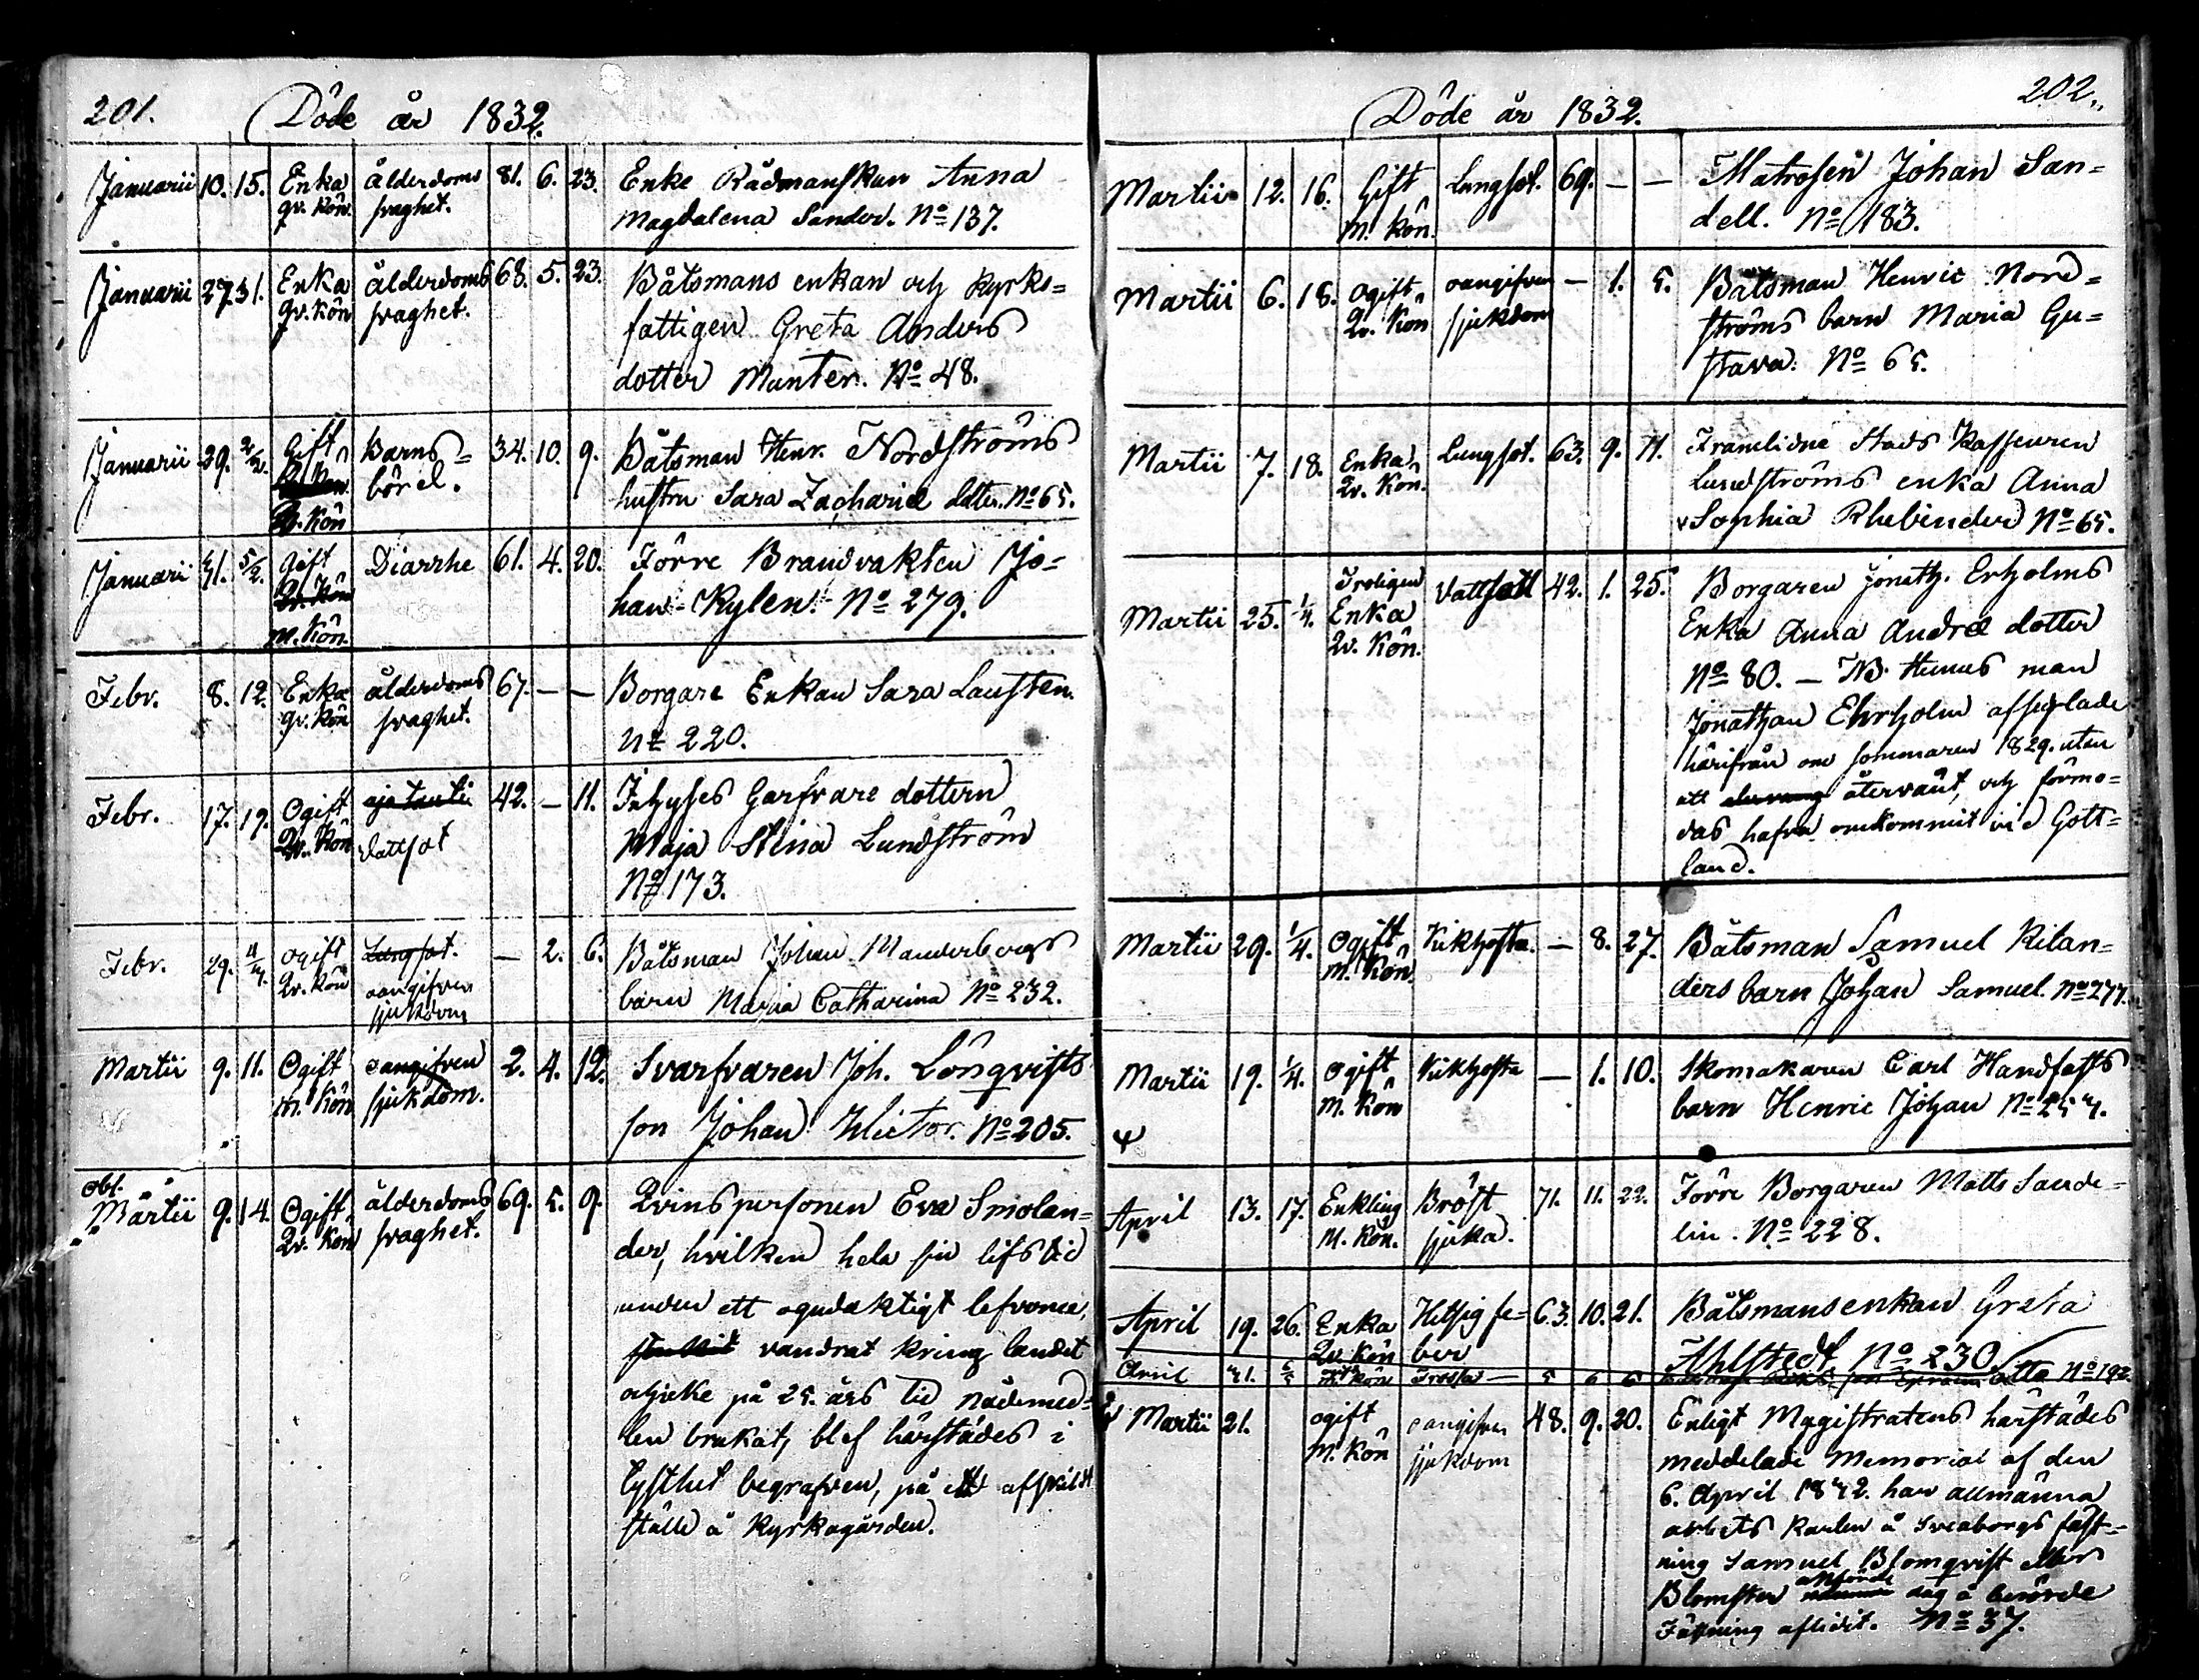 201.
Döde år 1832.
Januarii 10. 15. Enka Ålderdoms 81. 6. 23. Enke Rådmanskan Anna
qv. kön. svaghet. Magdalena Sander. No 137.
Januarii 27 31. Enka ålderdoms 68. 5. 23. Båtsmans enkan och kyrko=
qv. kön svaghet. fattigen Greta Anders
dotter Munter. No 48.
Januarii 29. 2/2. Gift Barns= 34. 10. 9. Båtsman Henr. Nordströms
börd. hustru Sara Zachariæ dotter. No 65.
Qv. Kön
Januarii 31. 5/2. Gift Diarrhe 61. 4. 20. Förre Brandvakten Jo-
Qv. Kön han Kylen. No 279.
M. Kön.
Febr. 8. 12. Enka ålderdoms 67. — — Borgare Enkan Sara Lausten.
qv. kön svaghet. No 220.
Febr. 17. 19. Ogift 42. — 11. Inhyses Garfvare dottern
Qv. Kön Vattsot Maja Stina Lundström
No 173.
Febr. 29. 11/4. ogift Lungsot. — 2. 6. Båtsman Johan Manderbergs
Qv. Kön oangifven barn Maria Catharina No 232.
sjukdom
Martii 9. 11. Ogift oangifven 2. 4. 12. Svarfvaren Joh. Lönqvists
m. Kön sjukdom. son Johan Victor. No 205.
obs.
Martii 9. 14. Ogift ålderdoms 69. 5. 9. Qvinspersonen Eva Smolan=
Qv. Kön svaghet. der, hvilken hela sin lifstid
under ett ogudaktigt lefverne,
vandrat kring landet
och icke på 25. års tid nådemed=
len brukat, blef härstädes i
tysthet begrafven, på ett afskildt
ställe å Kyrkogården.
202.
Döde år 1832.
Martii 12. 16. Gift Lungsot. 69. — — Matrosen Johan San=
M. Kön. dell. No 183.
Martii 6. 18. Ogift oangifven — 1. 5. Båtsman Henric Nord=
Qv. Kön sjukdom ströms barn Maria Gu=
stava. No 65.
Martii 7. 18. Enka Lungsot. 63. 9. 11. Framlidne Stads Kasseuren
Qv. Kön. Lundströms enka Anna
Sophia Rhebinder No 65.
Troligen
Martii 25. 1/4. Enka Vattsot 42. 1. 25. Borgaren Jonath. Erholms
Qv. Kön. Enka Anna Andræ dotter
No 80. — NB. Hennes man
Jonathan Ehrholm afseglade
härifrån om sommaren 1829. utan
att återvändt, och förmo=
das hafva omkommit vid Gott=
land.
Martii 29. 1/4. Ogift Kikhosta. — 8. 27. Båtsman Samuel Kilan=
M. Kön. ders barn Johan Samuel. No 277.
Martii 19. 1/4. ogift Kikhosta — 1. 10. Skomakaren Carl Handfasts
M. Kön barn Henric Johan No 257.
April 13. 17. Enkling Bröst 71. 11. 22. Förre Borgaren Matts Sande=
M. Kön. sjuka. lin. No 228.
April 19. 26. Enka Hetsig fe= 63. 10. 21. Båtsmansenkan Greta
Qv. Kön ber Ahlstedt. No 230.
April 21. M. Kön — 5 6 6 No 192.
Martii 21. ogift oangifven 48. 9. 20. Enligt Magistratens härstädes
M. Kön sjukdom meddelade Memorial af den
6. April 1842. har allmänna
arbets karlen å Sveaborgs fäst=
ning Samuel Blomqvist eller
Blomster dag å berörde
Fästning aflidit. No 37.